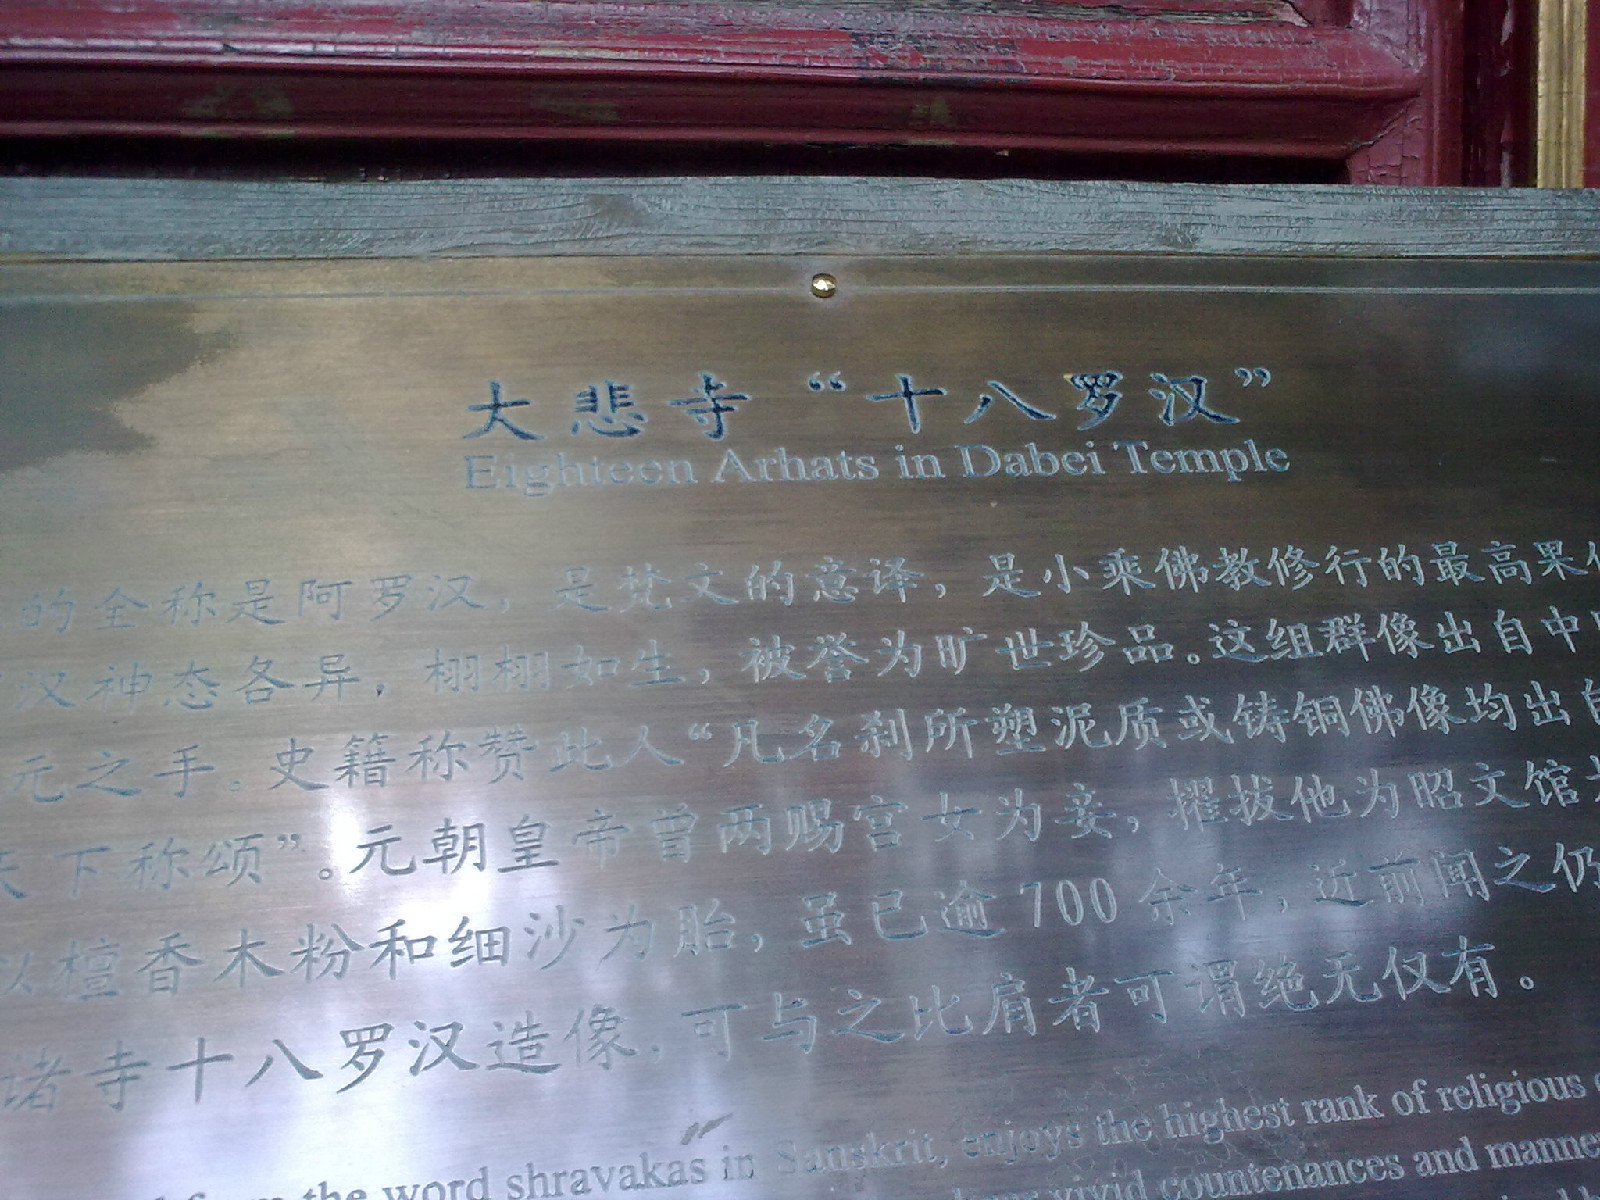 大悲寺“十八罗汉”
Eighteen Arhats in Dabei Temple
的全称是阿罗汉，是梵文的意译，是小乘佛教修行的最高果
汉神态各异，栩栩如生，被誉为旷世珍品。这组群像出自中
元之手。史籍称赞此人“凡名刹所塑泥质或铸铜佛像均出自
天下称颂”。元朝皇帝曾两赐宫女为妾，擢拔他为昭文馆
以檀香木粉和细沙为胎，虽已逾700余年，近前闻之仍
诸寺十八罗汉造像，可与之比肩者可谓绝无仅有。
the word shravakas in Sanskrit, enjoys the highest rank of religious
vivid countenances and